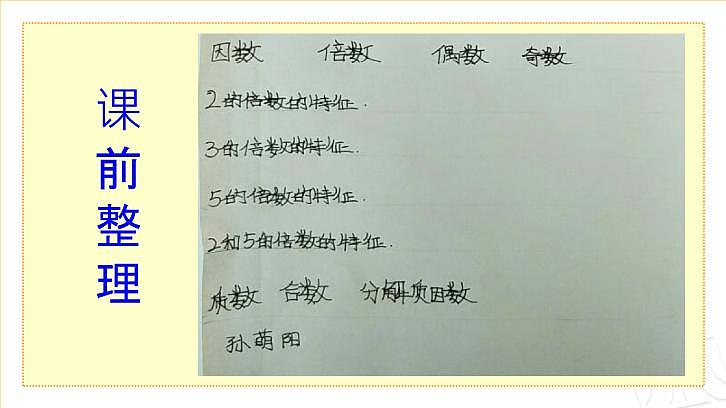 课前整理
因数 倍数 偶数 奇数
2的倍数的特征.
3的倍数的特征.
5的倍数的特征.
2和5的倍数的特征.
质数 合数 分解质因数
孙萌阳